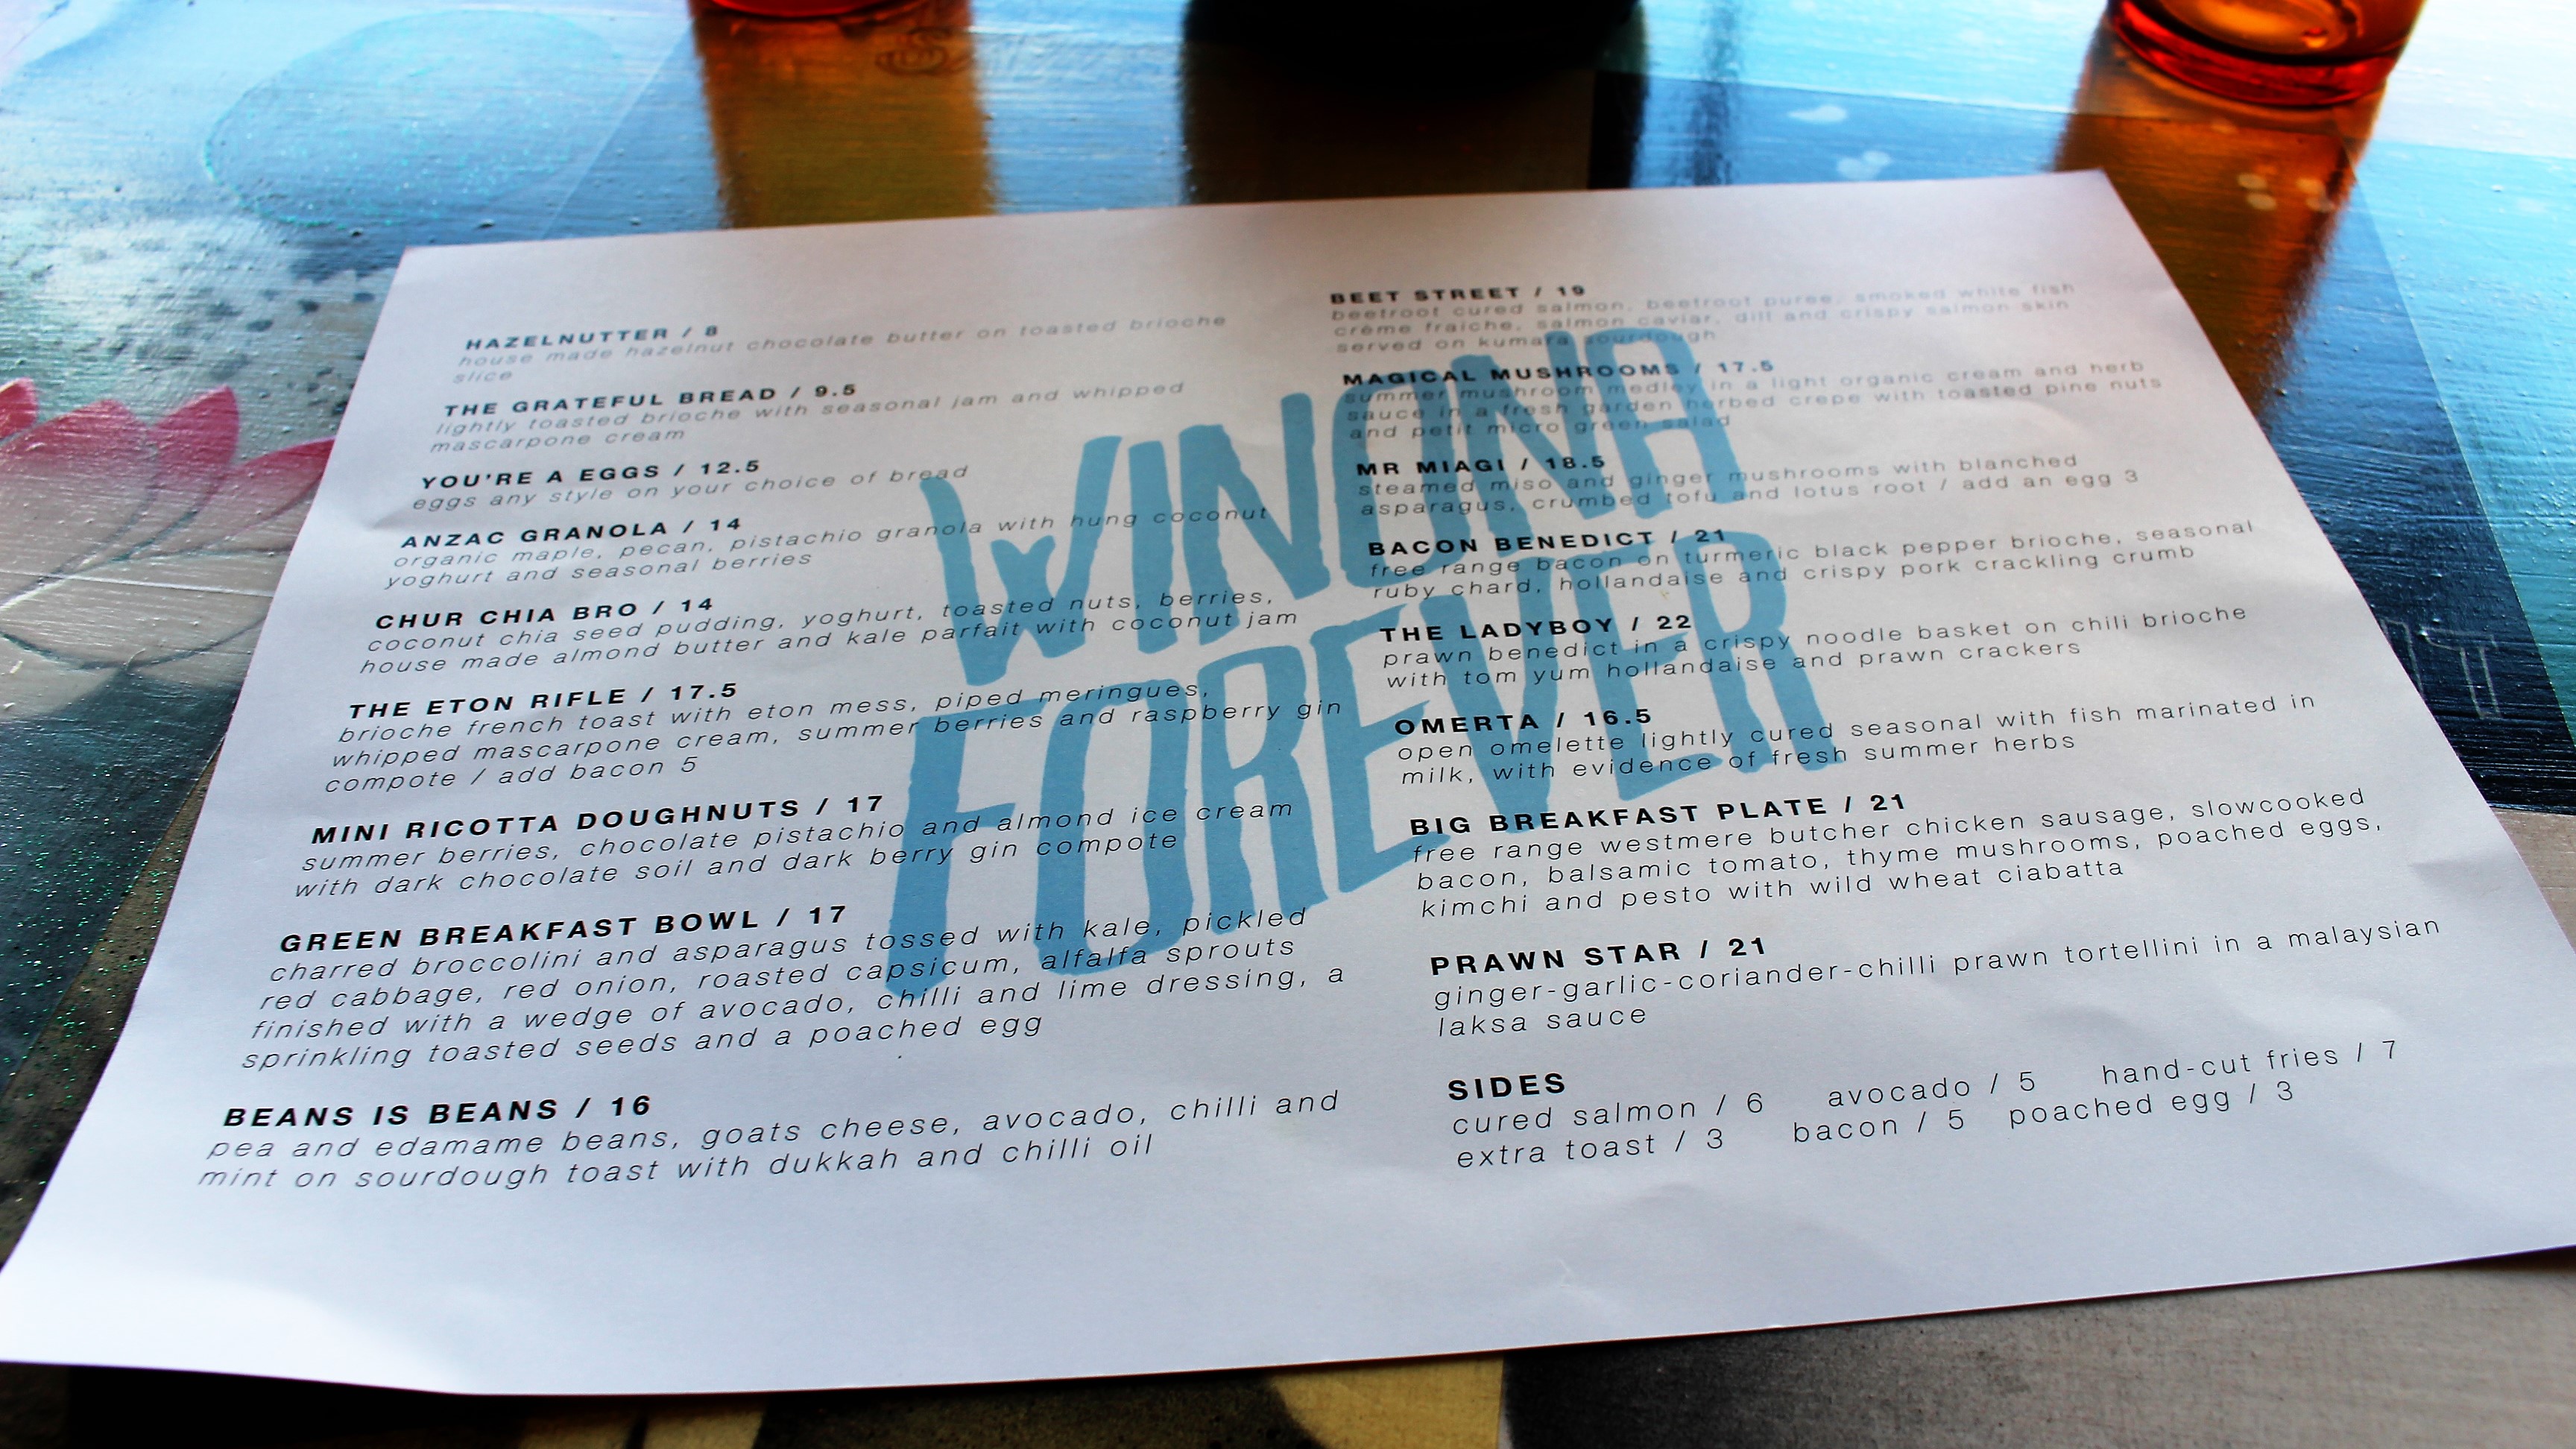 HAZELNUTTER / 8
house made hazelnut chocolate butter on toasted brioche
slice
THE GRATEFUL BREAD / 9.5
lightly toasted brioche with seasonal jam and whipped
mascarpone cream
YOU'RE A EGGS / 12.5
eggs any style on your choice of bread
ANZAC GRANOLA / 14
organic maple, pecan, pistachio granola with hung coconut
yoghurt and seasonal berries
CHUR CHIA BRO / 14
coconut chia seed pudding, yoghurt, toasted nuts, berries,
house made almond butter and kale parfait with coconut jam
THE ETON RIFLE / 17.5
brioche french toast with eton mess, piped meringues,
whipped mascarpone cream, summer berries and raspberry gin
compote / add bacon 5
MINI RICOTTA DOUGHNUTS / 17
summer berries, chocolate pistachio and almond ice cream
with dark chocolate soil and dark berry gin compote
GREEN BREAKFAST BOWL / 17
charred broccolini and asparagus tossed with kale, pickled
red cabbage, red onion, roasted capsicum, alfalfa sprouts
finished with a wedge of avocado, chilli and lime dressing, a
sprinkling toasted seeds and a poached egg
BEANS IS BEANS / 16
pea and edamame beans, goats cheese, avocado, chilli and
mint on sourdough toast with dukkah and chilli oil
WINONA
FOREVER
BEET STREET / 19
beetroot cured salmon, beetroot puree, smoked white fish
crème fraiche, salmon caviar, dill and crispy salmon skin
served on kumara sourdough
MAGICAL MUSHROOMS / 17.5
summer mushroom medley in a light organic cream and herb
sauce in a fresh garden herbed crepe with toasted pine nuts
and petit micro green salad
MR MIAGI / 18.5
steamed miso and ginger mushrooms with blanched
asparagus, crumbed tofu and lotus root / add an egg 3
BACON BENEDICT / 21
free range bacon on turmeric black pepper brioche, seasonal
ruby chard, hollandaise and crispy pork crackling crumb
THE LADYBOY / 22
prawn benedict in a crispy noodle basket on chili brioche
with tom yum hollandaise and prawn crackers
OMERTA / 16.5
open omelette lightly cured seasonal with fish marinated in
milk, with evidence of fresh summer herbs
BIG BREAKFAST PLATE / 21
free range westmere butcher chicken sausage, slowcooked
bacon, balsamic tomato, thyme mushrooms, poached eggs,
kimchi and pesto with wild wheat ciabatta
PRAWN STAR / 21
ginger-garlic-coriander-chilli prawn tortellini in a malaysian
laksa sauce
SIDES
cured salmon / 6 avocado / 5 hand-cut fries / 7
extra toast / 3 bacon / 5 poached egg / 3